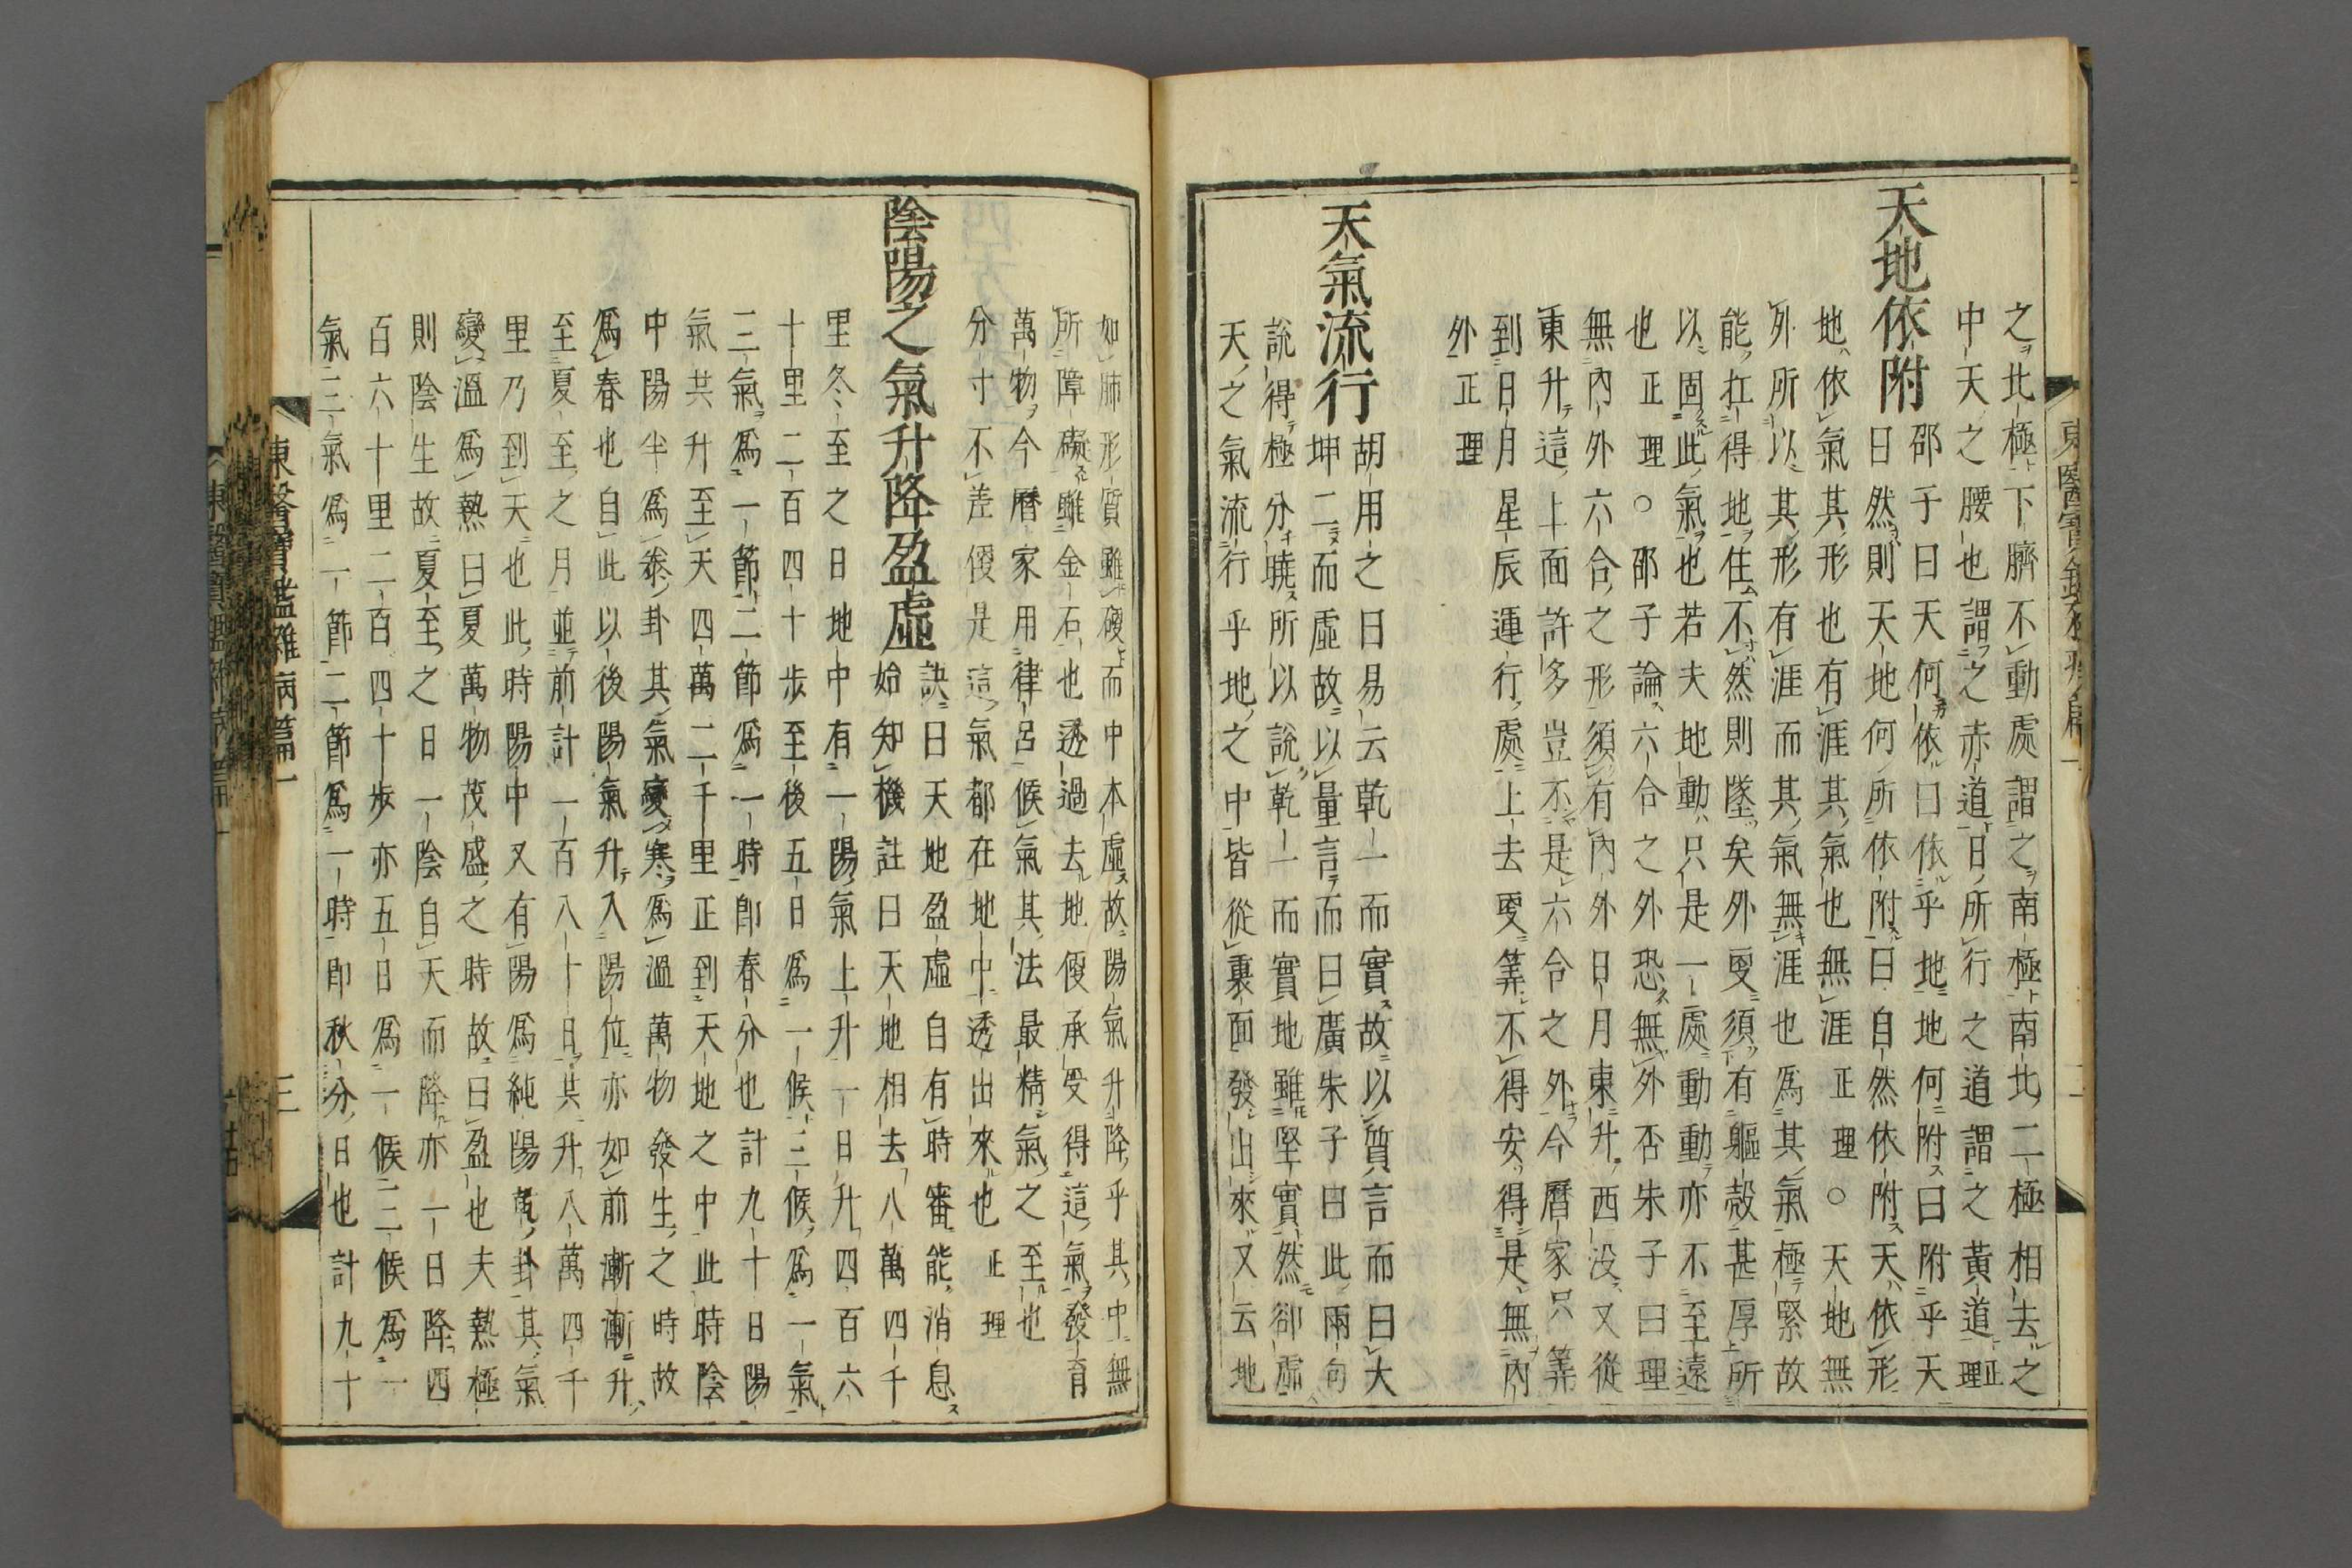 之北極下臍不動處謂之南極南北二極相去之
中天之腰也謂之赤道日所行之道謂之黃道正理
天地依附邵子曰天何依曰依乎地地何附曰附乎天
曰然則天地何所依附曰自然依附天依形
地依氣其形也有涯其氣也無涯正理○天地無
外所以其形有涯而其氣無涯也爲其氣極緊故
能扛得地住不然則墜矣外更須有軀殼甚厚所
以固此氣也若夫地動只是一處動動亦不至遠
也正理○邵子論六合之外恐無外否朱子曰理
無內外六合之形須有內外日月東升西沒又從
東升這上面許多豈不是六合之外今曆家只筭
到日月星辰運行處上去更筭不得安得是無內
外正理
天氣流行胡用之曰易云乾一而實故以質言而曰大
坤二而虛故以量言而曰廣朱子曰此兩句
說得極分曉所以說乾一而實地雖堅實然卻虛
天之氣流行乎地之中皆從裏面發出來又云地
如肺形質雖硬而中本虛故陽氣升降乎其中無
所障礙雖金石也透過去地便承受得這氣發育
萬物今曆家用律呂候氣其法最精氣之至也
分寸不差便是這氣都在地中透出來也正理
陰陽之氣升降盈虛訣曰天地盈虛自有時審能消息
始知機註曰天地相去八萬四千
里冬至之日地中有一陽氣上升一日升四百六
十里二百四十步至後五日爲一候三候爲一氣
三氣爲一節二節爲一時卽春分也計九十日陽
氣共升至天四萬二千里正到天地之中此時陰
中陽半爲泰卦其氣變寒爲溫萬物發生之時故
爲春也自此以後陽氣升入陽位亦如前漸漸升
至夏至之月並前計一百八十日共升八萬四千
里乃到天也此時陽中又有陽爲純陽乾卦其氣
變溫爲熱曰夏萬物茂盛之時故曰盈也夫熱極
則陰生故夏至之日一陰自天而降亦一日降四
百六十里二百四十步亦五日爲一候三候爲一
氣三氣爲一節二節爲一時卽秋分日也計九十
東醫寶鑑雜病篇一
三